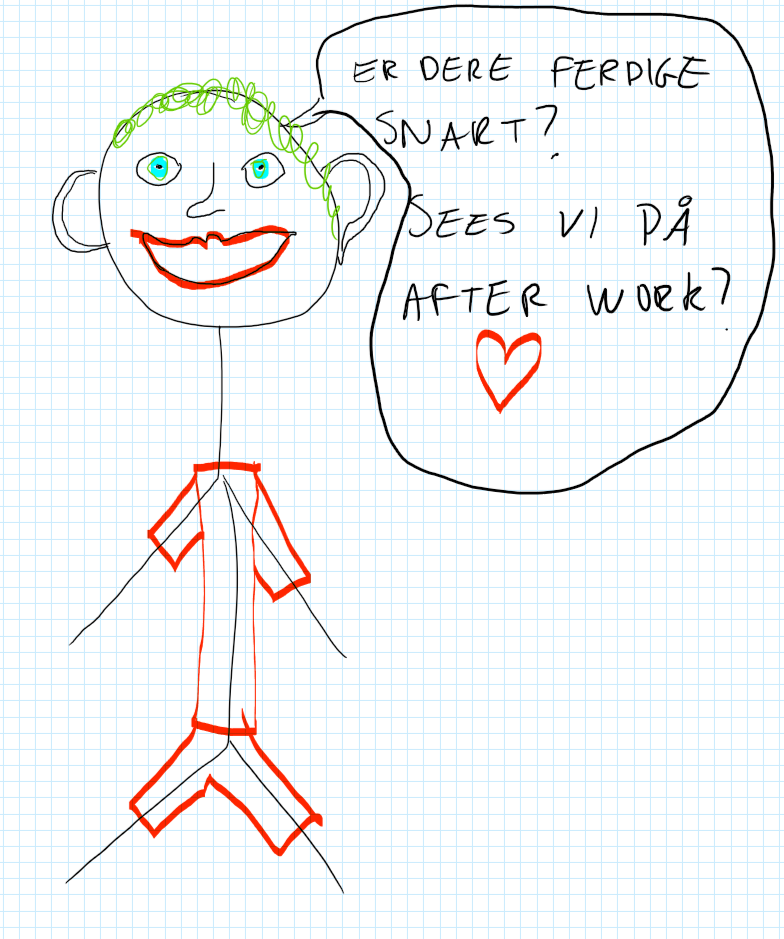 ER DERE FERDIGE
SNART?
SEES VI PÅ
AFTER WORK?